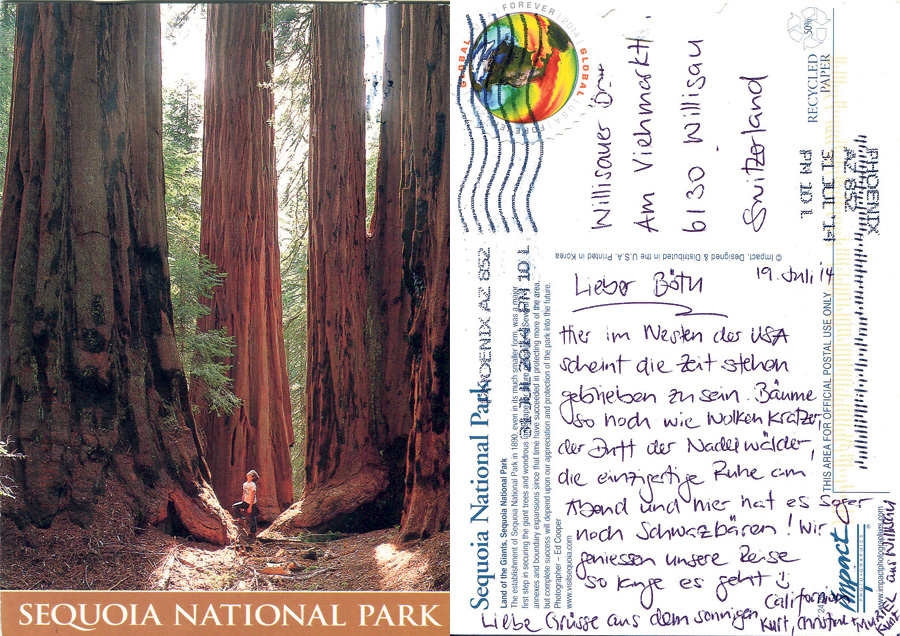 SEQUOIA NATIONAL PARK
FOREVER
GLOBAL
GLOBAL
FOREVER
2014
Willisauer
Am Viehmarkt 1
6130 Willisau
Switzerland
50%
RECYCLED
PAPER
PHOENIX
AZ 852
31 JUL 14
PM 10 L
PHOENIX AZ 852
31 JUL 2014 PM 10 L
© Impact, Designed & Distributed in the U.S.A. Printed in Korea
THIS AREA FOR OFFICIAL POSTAL USE ONLY
Sequoia National Park
Land of the Giants, Sequoia National Park
The establishment of Sequoia National Park in 1890, even in its much smaller form, was a major
first step in securing the giant trees and wondrous
annexes and boundary expansions since that time have succeeded in protecting more of the area,
but complete success will depend upon our appreciation and protection of the park into the future.
Photographer – Ed Cooper
www.visitsequoia.com
19. Juli 14
Lieber Bott
Hier im Westen der USA
scheint die Zeit stehen
geblieben zu sein. Bäume
so hoch wie Wolkenkratzer,
der Duft der Nadelwälder,
die einzigartige Ruhe am
Abend und hier hat es sogar
noch Schwarzbären! Wir
geniessen unsere Reise
so lange es geht
Liebe Grüsse aus dem sonnigen Californien
Kurt, Christine
aus Willisau
impact
PHOTOGRAPHICS
www.impactphotographics.com